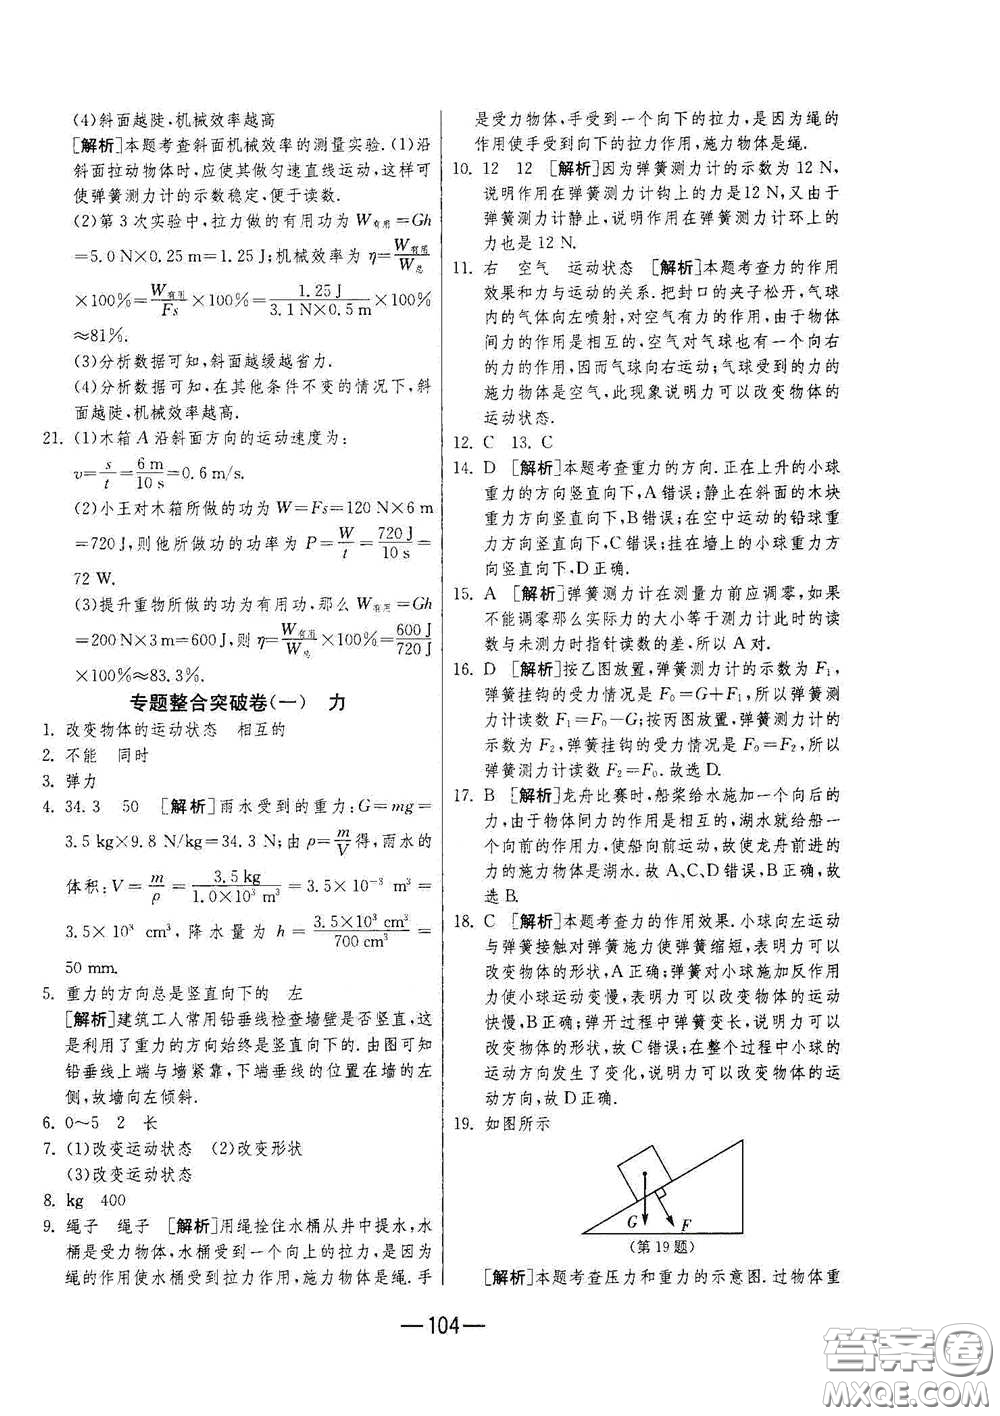 (4)斜面越陡,机械效率越高
[解析]本题考查斜面机械效率的测量实验.(1)沿
斜面拉动物体时,应使其做匀速直线运动,这样可
使弹簧测力计的示数稳定,便于读数.
(2)第3次实验中,拉力做的有用功为W有用=Gh
=5.0 N×0.25 m=1.25 J;机械效率为 η=W有用/W总
×100%=W有用/Fs×100%=1.25 J/3.1 N×0.5 m×100%
≈81%.
(3)分析数据可知,斜面越缓越省力.
(4)分析数据可知,在其他条件不变的情况下,斜
面越陡,机械效率越高.
21. (1)木箱A沿斜面方向的运动速度为:
v=s/t=6 m/10 s=0.6 m/s.
(2)小王对木箱所做的功为W=Fs=120 N×6 m
=720 J,则他所做功的功率为 P=W/t=720 J/10 s=
72 W.
(3)提升重物所做的功为有用功,那么W有用=Gh
=200 N×3 m=600 J,则 η=W有用/W总×100%=600 J/720 J
×100%≈83.3%.
专题整合突破卷(一) 力
1. 改变物体的运动状态 相互的
2. 不能 同时
3. 弹力
4. 34.3 50 [解析]雨水受到的重力:G=mg=
3.5 kg×9.8 N/kg=34.3 N;由 ρ=m/V得,雨水的
体积:V=m/ρ=3.5 kg/1.0×10³ m³=3.5×10⁻³ m³=
3.5×10³ cm³,降水量为 h=3.5×10³ cm³/700 cm³=
50 mm.
5. 重力的方向总是竖直向下的 左
[解析]建筑工人常用铅垂线检查墙壁是否竖直,这
是利用了重力的方向始终是竖直向下的.由图可知
铅垂线上端与墙紧靠,下端垂线的位置在墙的左
侧,故墙向左倾斜.
6. 0~5 2 长
7. (1)改变运动状态 (2)改变形状
(3)改变运动状态
8. kg 400
9. 绳子 绳子 [解析]用绳拴住水桶从井中提水,水
桶是受力物体,水桶受到一个向上的拉力,是因为
绳的作用使水桶受到拉力作用,施力物体是绳.手
是受力物体,手受到一个向下的拉力,是因为绳的
作用使手受到向下的拉力作用,施力物体是绳.
10. 12 12 [解析]因为弹簧测力计的示数为12 N,
说明作用在弹簧测力计钩上的力是12 N,又由于
弹簧测力计静止,说明作用在弹簧测力计环上的
力也是12 N.
11. 右 空气 运动状态 [解析]本题考查力的作用
效果和力与运动的关系.把封口的夹子松开,气球
内的气体向左喷射,对空气有力的作用,由于物体
间力的作用是相互的,空气对气球也有一个向右
的力的作用,因而气球向右运动;气球受到的力的
施力物体是空气,此现象说明力可以改变物体的
运动状态.
12. C 13. C
14. D [解析]本题考查重力的方向.正在上升的小球
重力的方向竖直向下,A错误;静止在斜面的木块
重力方向竖直向下,B错误;在空中运动的铅球重
力方向竖直向下,C错误;挂在墙上的小球重力方
向竖直向下,D正确.
15. A [解析]弹簧测力计在测量力前应调零,如果
不能调零那么实际力的大小等于测力计此时的读
数与未测力时指针读数的差.所以A对.
16. D [解析]按乙图放置,弹簧测力计的示数为F₁,
弹簧挂钩的受力情况是F₀=G+F₁,所以弹簧测
力计读数F₁=F₀-G;按丙图放置,弹簧测力计的
示数为F₂,弹簧挂钩的受力情况是F₀=F₂,所以
弹簧测力计读数F₂=F₀.故选D.
17. B [解析]龙舟比赛时,船桨给水施加一个向后的
力,由于物体间力的作用是相互的,湖水就给船一
个向前的作用力,使船向前运动,故使龙舟前进的
力的施力物体是湖水.故A、C、D错误,B正确,故
选B.
18. C [解析]本题考查力的作用效果.小球向左运动
与弹簧接触对弹簧施力使弹簧缩短,表明力可以
改变物体的形状,A正确;弹簧对小球施加反作用
力使小球运动变慢,表明力可以改变物体的运动
快慢,B正确;弹开过程中弹簧变长,说明力可以改
变物体的形状,故C错误;在整个过程中小球的
运动方向发生了变化,说明力可以改变物体的运
动方向,故D正确.
19. 如图所示
G F
(第19题)
[解析]本题考查压力和重力的示意图.过物体重
—104—
答案圈
MXQE.COM